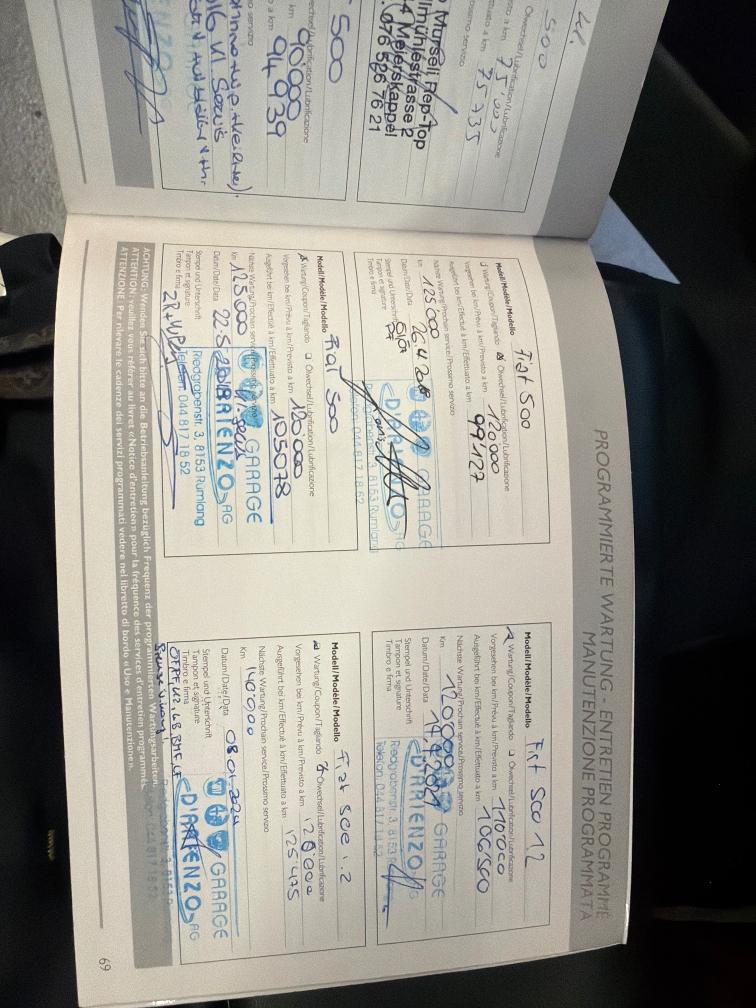 PROGRAMMIERTE WARTUNG - ENTRETIEN PROGRAMMÉ
MANUTENZIONE PROGRAMMATA
500
75.000
75935
Murseli Rep-Top
Meierskappel
076 526 76 21
500
90.000
94939
Modell/Modèle/Modello Fiat 500
Wartung/Coupon/Tagliando Ölwechsel/Lubrification/Lubrificazione
Vorgesehen bei km/Prévu à km/Previsto a km 120000
Ausgeführt bei km/Effectué à km/Effettuato a km 99'127
Nächste Wartung/Prochain service/Prossimo servizio
Km 125000
Datum/Date/Data 26.4
Stempel und Unterschrift
Tampon et signature
Timbro e firma
GARAGE
D'ARIENZO AG
8153 Rümlang
Telefon 044 817 18 52
Modell/Modèle/Modello Fiat 500
Wartung/Coupon/Tagliando Ölwechsel/Lubrification/Lubrificazione
Vorgesehen bei km/Prévu à km/Previsto a km 120000
Ausgeführt bei km/Effectué à km/Effettuato a km 105078
Nächste Wartung/Prochain service/Prossimo servizio
Km 125000
Datum/Date/Data 22-5-
Stempel und Unterschrift
Tampon et signature
Timbro e firma
GARAGE
D'ARIENZO AG
Riedgrabenstr. 3, 8153 Rümlang
Telefon 044 817 18 52
Modell/Modèle/Modello Fiat 500 1.2
Wartung/Coupon/Tagliando Ölwechsel/Lubrification/Lubrificazione
Vorgesehen bei km/Prévu à km/Previsto a km 110000
Ausgeführt bei km/Effectué à km/Effettuato a km 106500
Nächste Wartung/Prochain service/Prossimo servizio
Km 120000
Datum/Date/Data 14.4.2021
Stempel und Unterschrift
Tampon et signature
Timbro e firma
GARAGE
D'ARIENZO AG
Riedgrabenstr. 3, 8153
Telefon 044 817 18 52
Modell/Modèle/Modello Fiat 500 1.2
Wartung/Coupon/Tagliando Ölwechsel/Lubrification/Lubrificazione
Vorgesehen bei km/Prévu à km/Previsto a km 120000
Ausgeführt bei km/Effectué à km/Effettuato a km 125475
Nächste Wartung/Prochain service/Prossimo servizio
Km 140000
Datum/Date/Data 08.01.2024
Stempel und Unterschrift
Tampon et signature
Timbro e firma
GARAGE
D'ARIENZO AG
ACHTUNG: Wenden Sie sich bitte an die Betriebsanleitung bezüglich Frequenz der programmierten Wartungsarbeiten.
ATTENTION: veuillez vous référer au livret «Notice d'entretien» pour la fréquence des services d'entretien programmés.
ATTENZIONE: Per rilevare le cadenze dei servizi programmati vedere nel libretto di bordo «Uso e Manutenzione».
69